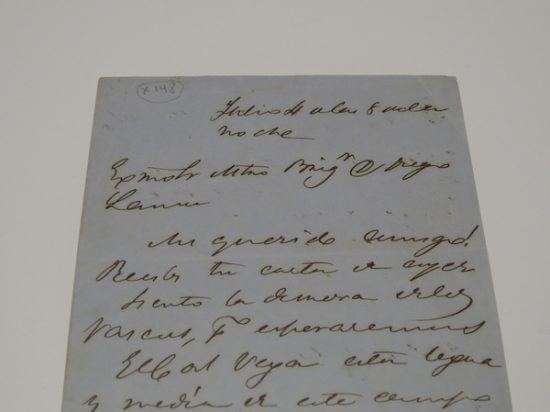 x 148
Febrero 11 a las 8 de la
noche
Exmo Sr Mtro Brigr D Diego
Lamas
Mi querido amigo!
Recibi tu carta de ayer
Siento la demora de los
Vascos, pr esperaremos
El Cnl Vega está legua
y media de este campo